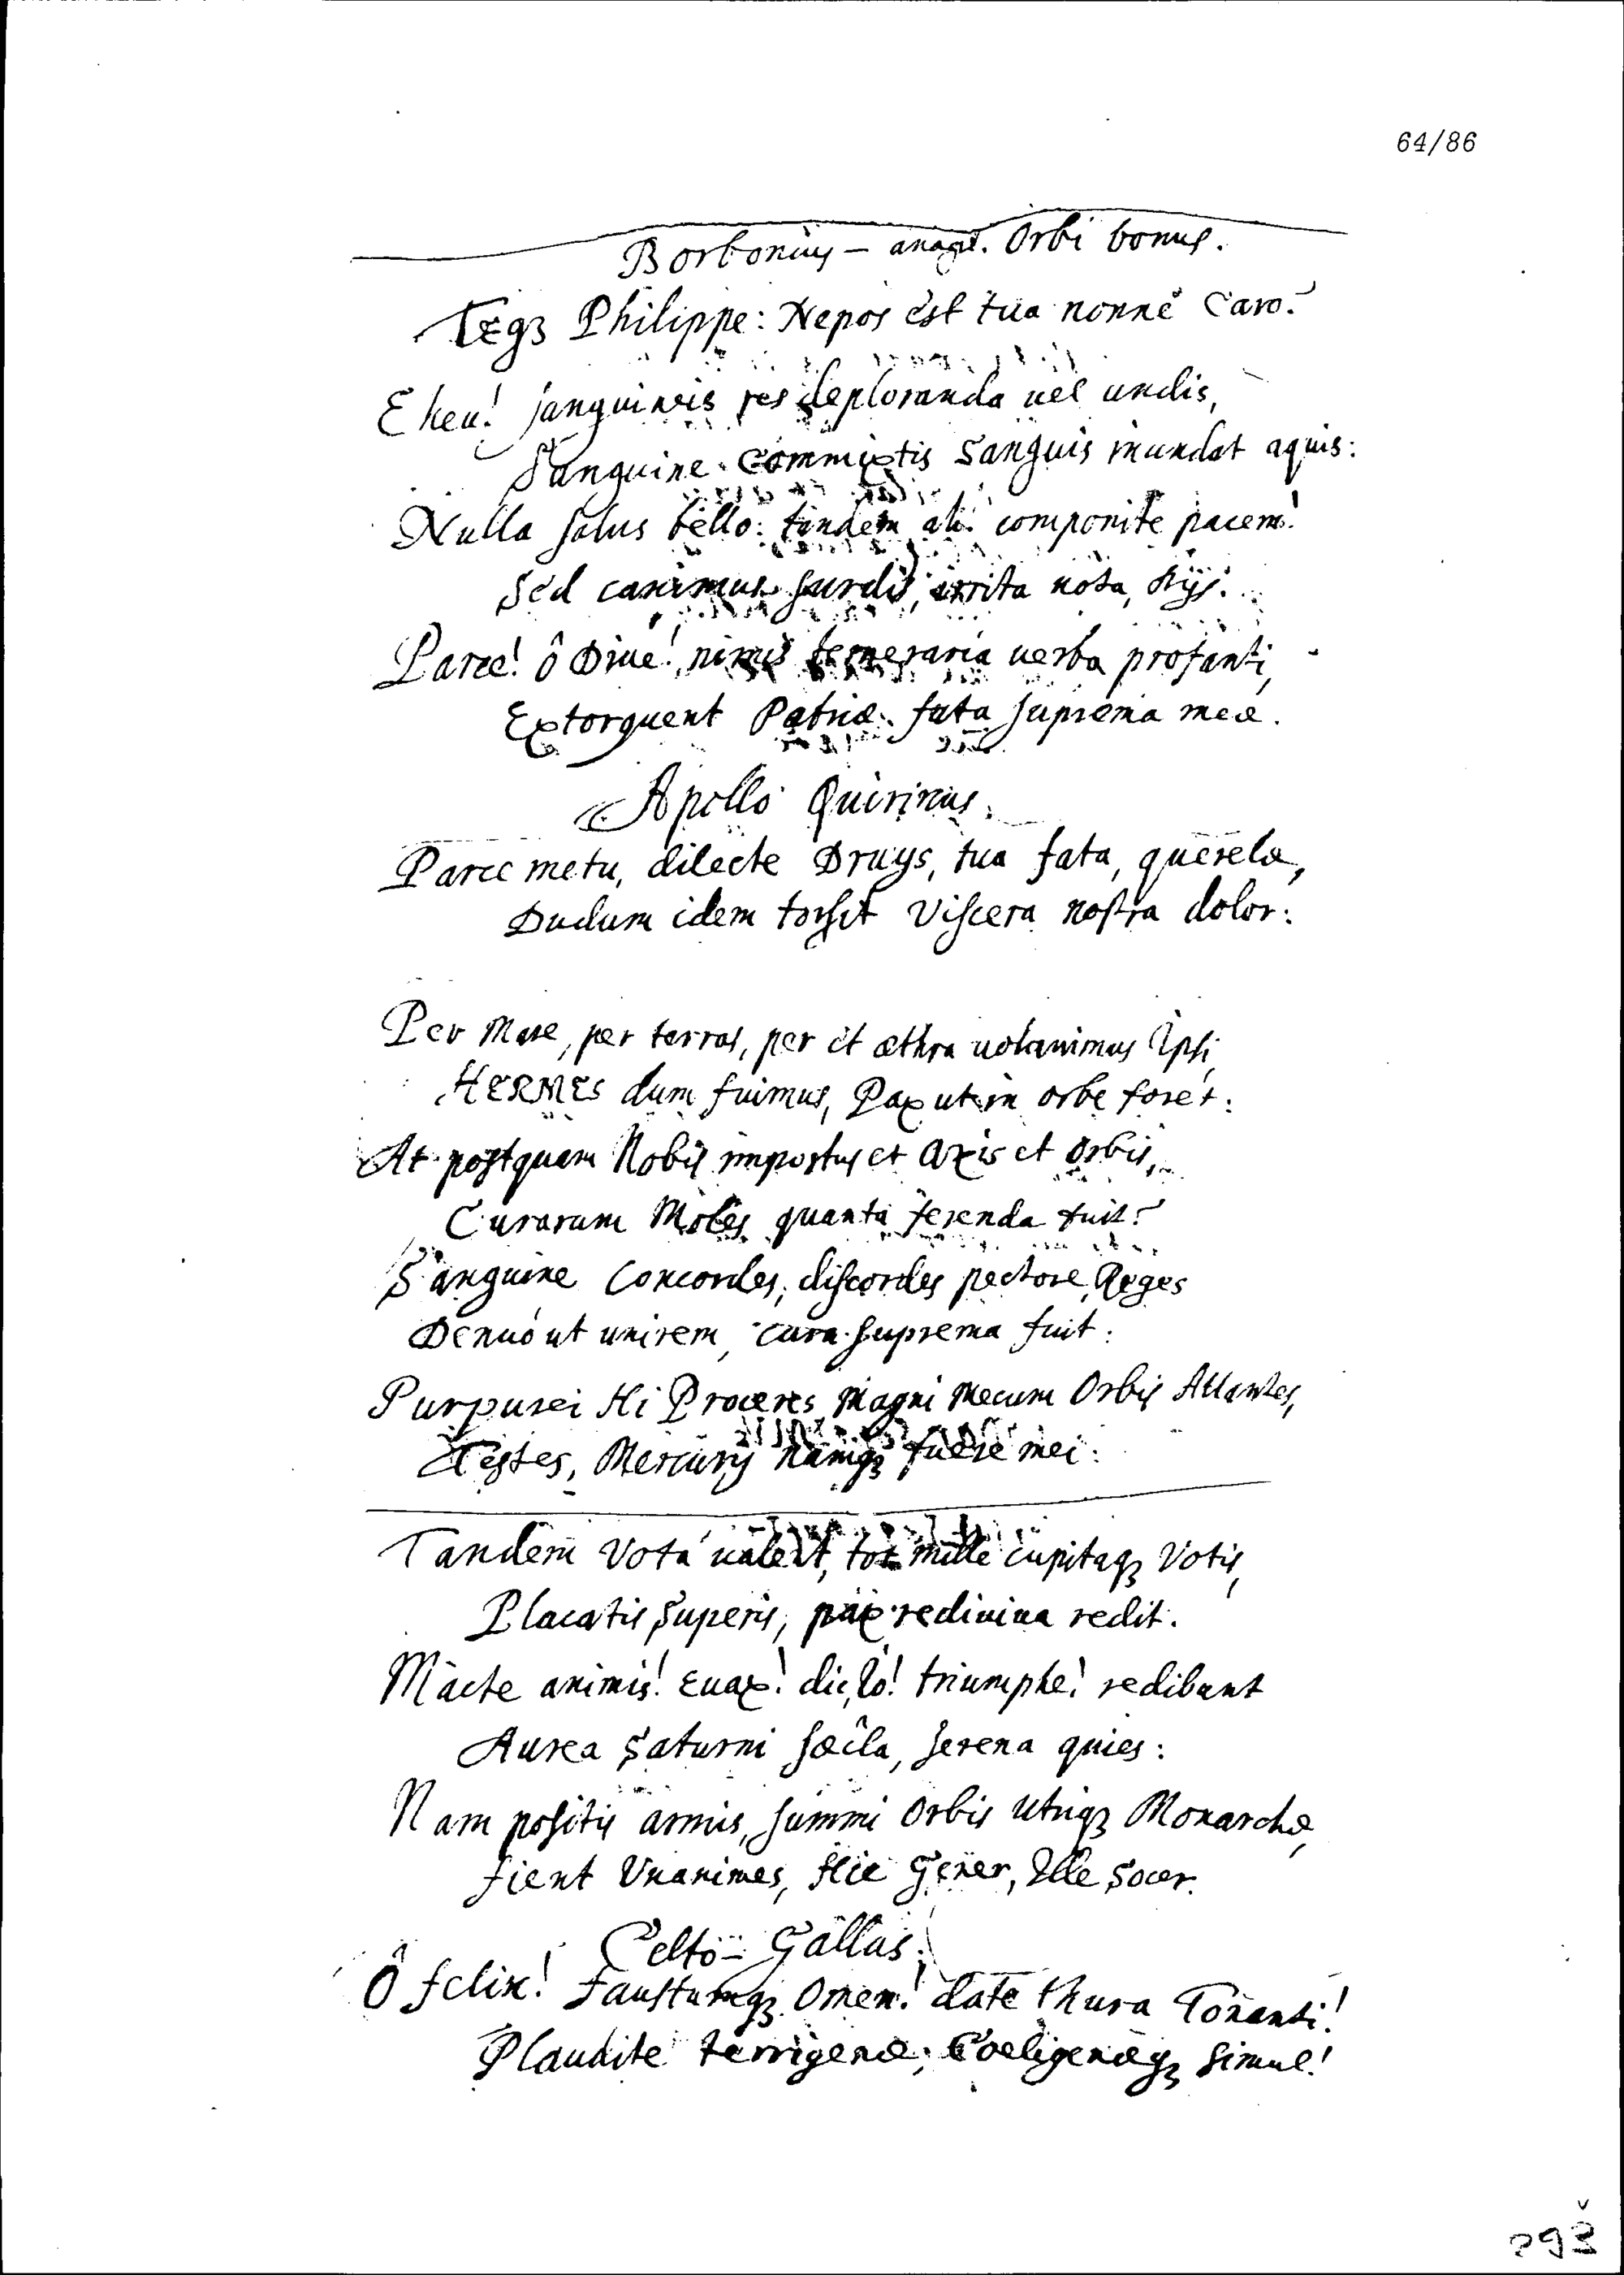 64/86
Borbonius – anagr. Orbi bonus.
Teqꝫ Philippe: Nepos est tua nonne Caro?
Eheu! sanguineis res deploranda uel undis,
Sanguine commixtis Sanguis inundat aquis:
Nulla salus bello: tandem ah! componite pacem!
Sed canimus surdis, irrita uota, Diis.
Parce! ô Diue! nimis temeraria uerba profanti,
Extorquent Patriæ fata suprema meæ.
Apollo Quirinus.
Parce metu, dilecte Druys, tua fata, querelæ,
Dudum idem torsit Viscera nostra dolor:
Per Mare, per terras, per et æthra uolauimus Ipsi,
HERMES dum fuimus, Pax ut in orbe foret:
At postquam Nobis impostus et Axis et Orbis,
Curarum Moles quanta ferenda fuit?
Sanguine Concordes, discordes pectore, Reges
Denuó ut unirem, cura suprema fuit:
Purpurei Hi Proceres Magni Mecum Orbis Atlantes,
Testes, Mercurij namqꝫ fuere mei:
Tandem Vota ualent, tot mille cupitaqꝫ Votis,
Placatis Superis, pax rediuiua redit.
Macte animis! Euax! dic, Io! triumphe! redibunt
Aurea Saturni sæcla, serena quies:
Nam positis armis, summi Orbis utriqꝫ Monarchæ,
fient Vnanimes, Hic Gener, Ille Socer.
Celto-Gallus.
Ô felix! Faustumqꝫ Omen! date thura Tonanti!
Plaudite terrigenæ, Coeligenæqꝫ simul!